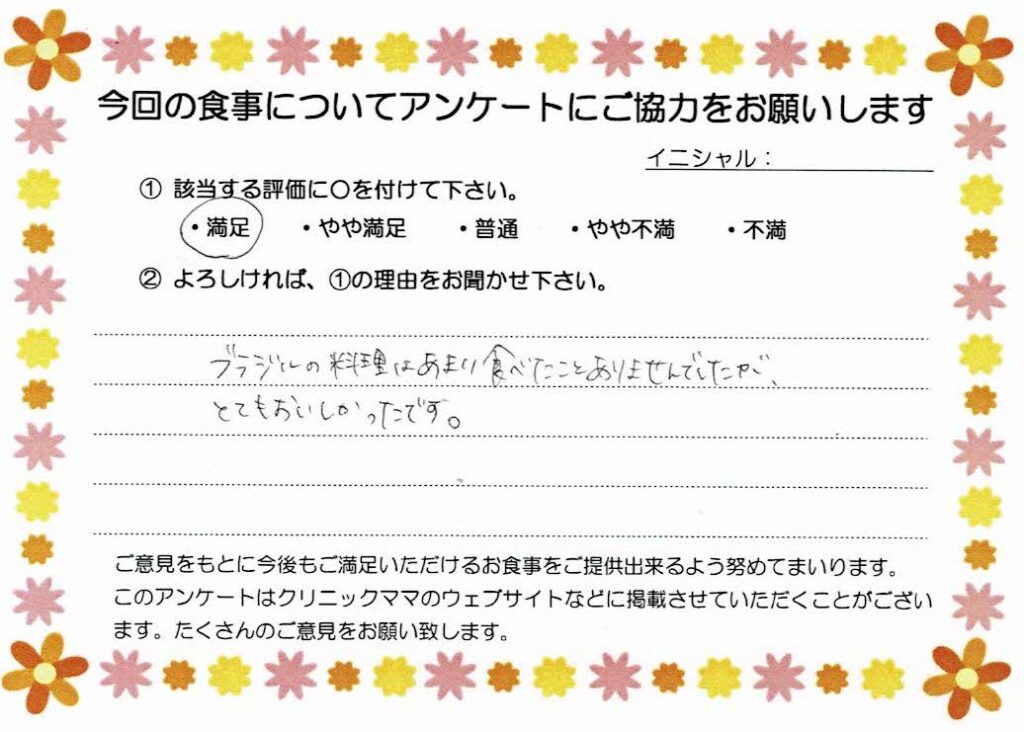 今回の食事についてアンケートにご協力をお願いします
イニシャル：
① 該当する評価に○を付けて下さい。
・満足 ・やや満足 ・普通 ・やや不満 ・不満
② よろしければ、①の理由をお聞かせ下さい。
ブラジルの料理はあまり食べたことありませんでしたが、
とてもおいしかったです。
ご意見をもとに今後もご満足いただけるお食事をご提供出来るよう努めてまいります。
このアンケートはクリニックママのウェブサイトなどに掲載させていただくことがござい
ます。たくさんのご意見をお願い致します。